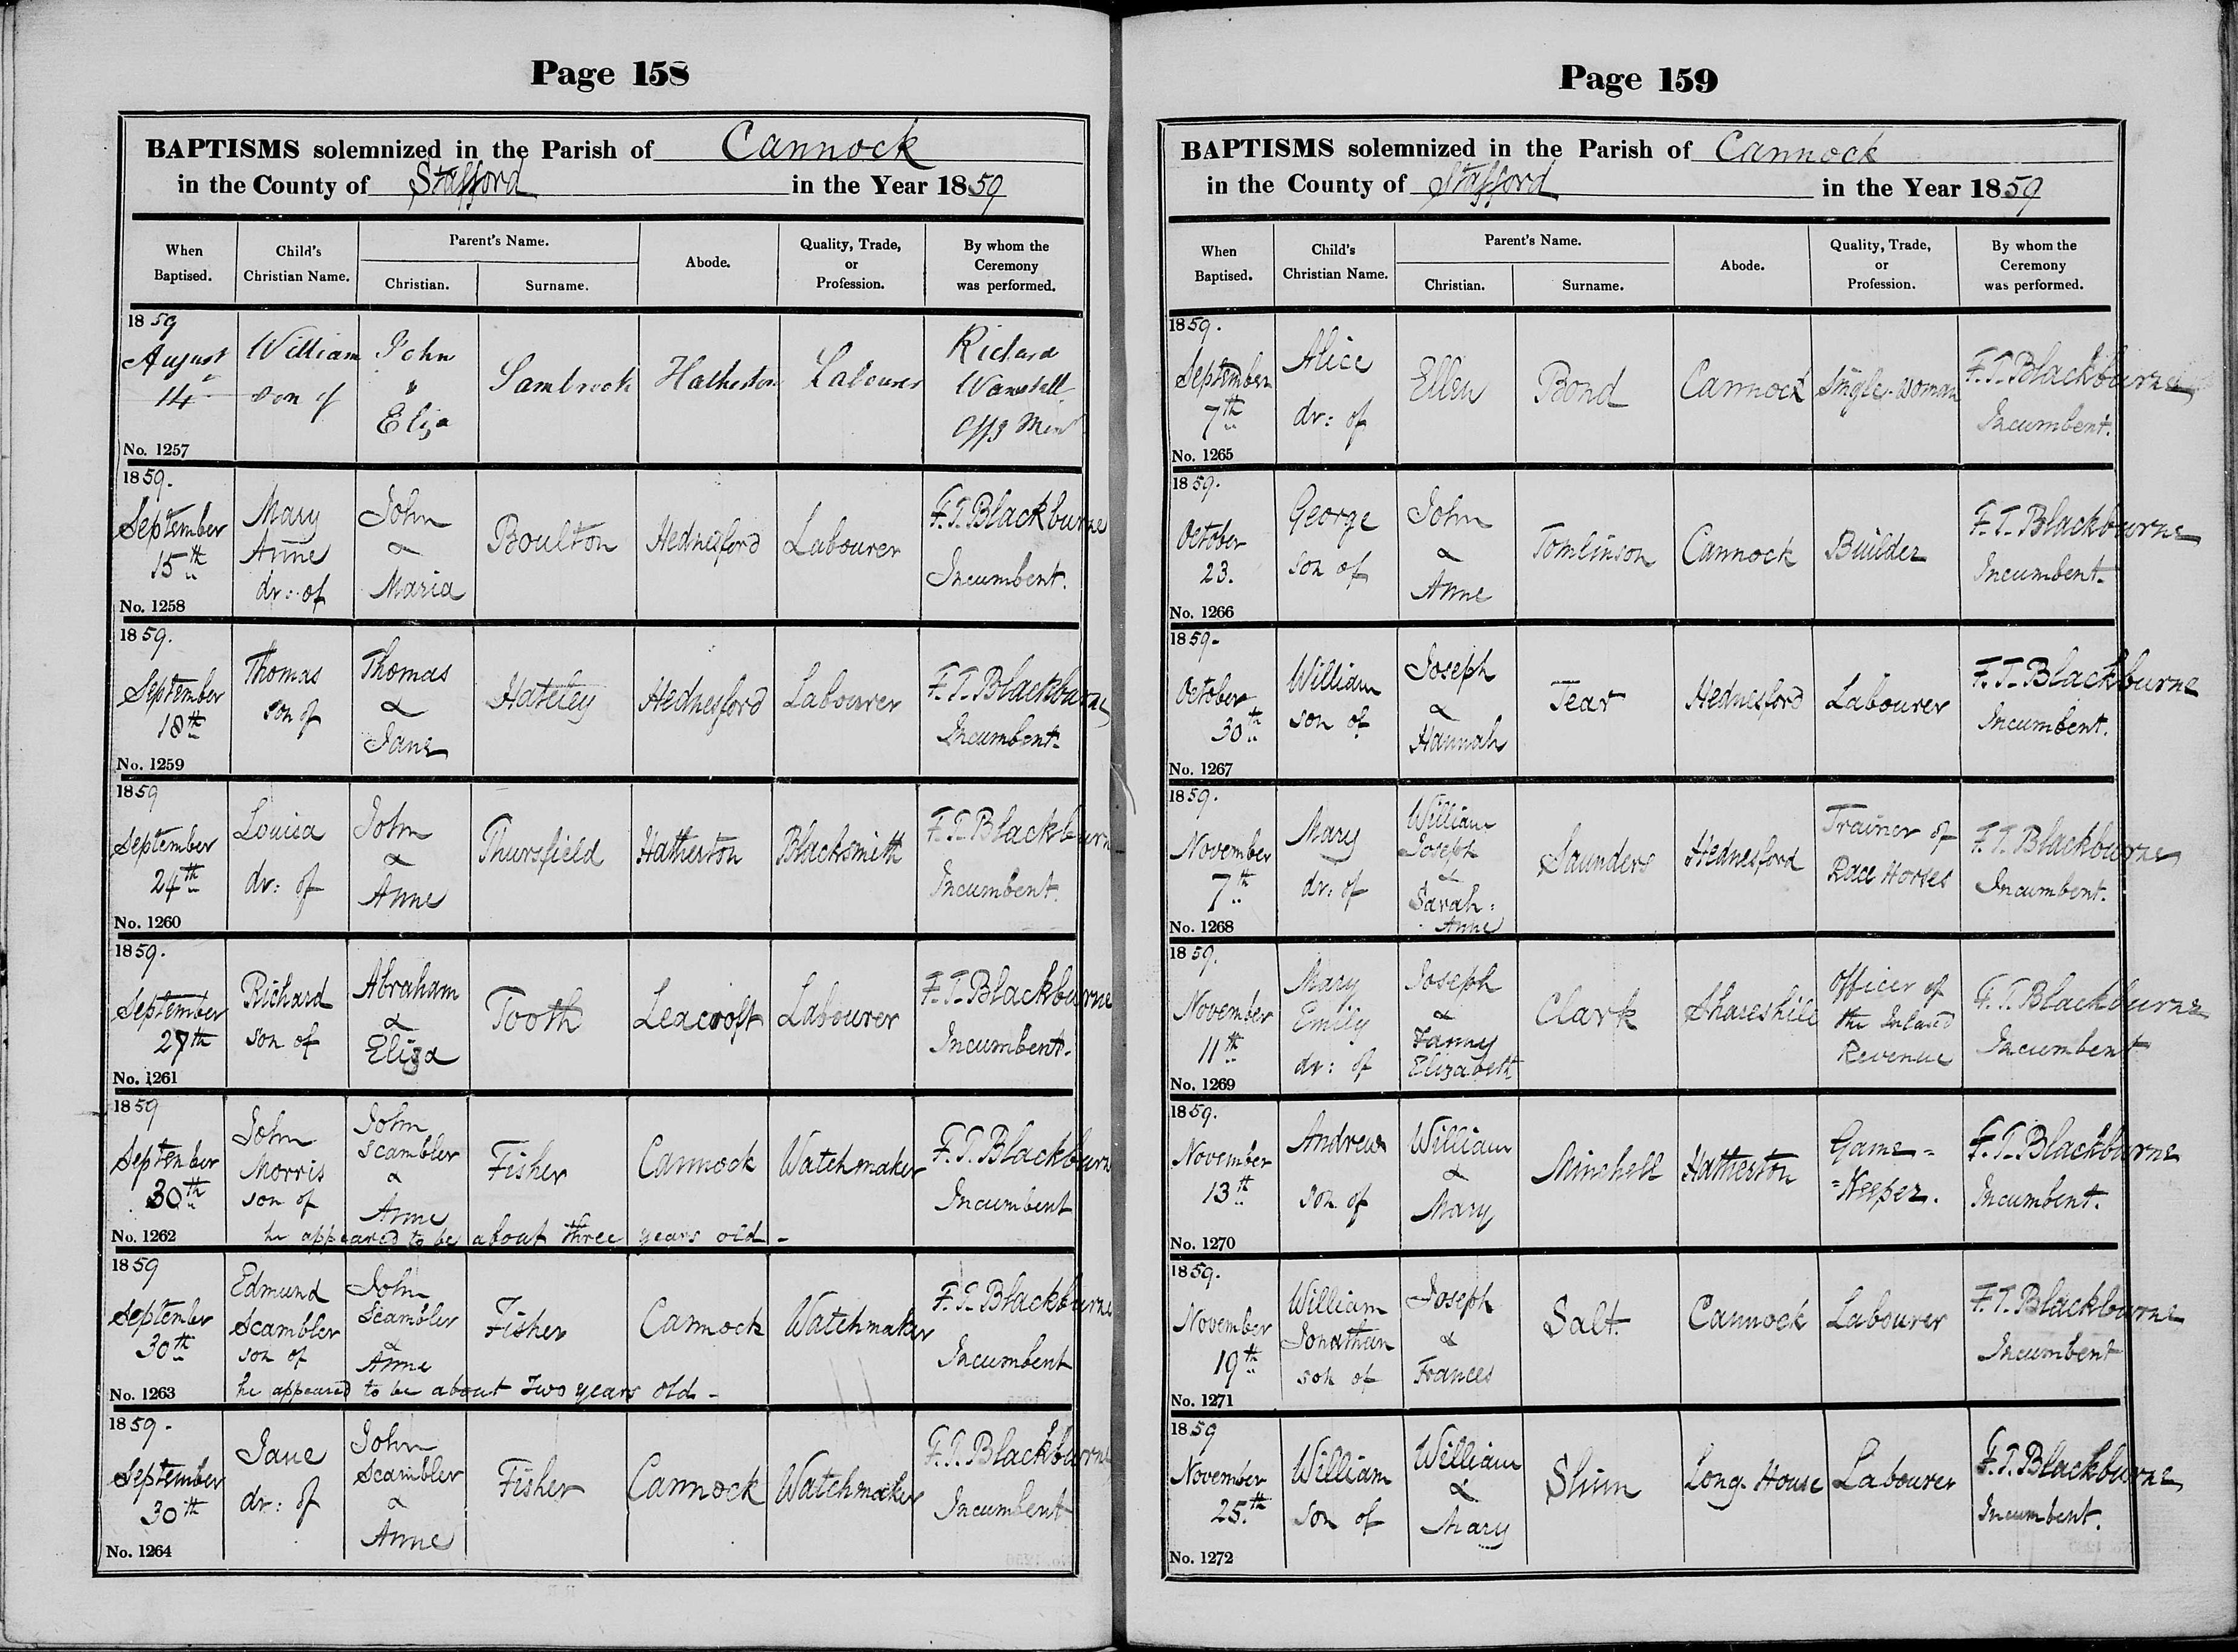 Page 158
BAPTISMS solemnized in the Parish of Cannock
in the County of Stafford in the Year 1859
When Baptised. Child's Christian Name. Parent's Name. Christian. Surname. Abode. Quality, Trade, or Profession. By whom the Ceremony was performed.
1859 August 14 William son of John & Eliza Sambrook Hatherton Labourer Richard Offg Minr
No. 1257
1859. September 15th Mary Anne dr: of John & Maria Boulton Hednesford Labourer F.T. Blackburne Incumbent.
No. 1258
1859. September 18th Thomas son of Thomas & Jane Hateley Hednesford Labourer F.T. Blackburne Incumbent.
No. 1259
1859 September 24th Louisa dr: of John & Anne Thursfield Hatherton Blacksmith F.T. Blackburne Incumbent.
No. 1260
1859. September 27th Richard son of Abraham & Eliza Tooth Leacroft Labourer F.T. Blackburne Incumbent.
No. 1261
1859 September 30th John Morris son of John Scambler & Anne Fisher Cannock Watchmaker F.T. Blackburne Incumbent
No. 1262 he appeared to be about three years old -
1859 September 30th Edmund Scambler son of John Scambler & Anne Fisher Cannock Watchmaker F.T. Blackburne Incumbent
No. 1263 he appeared to be about two years old -
1859. September 30th Jane dr: of John Scambler & Anne Fisher Cannock Watchmaker F.T. Blackburne Incumbent
No. 1264
Page 159
BAPTISMS solemnized in the Parish of Cannock
in the County of Stafford in the Year 1859
When Baptised. Child's Christian Name. Parent's Name. Christian. Surname. Abode. Quality, Trade, or Profession. By whom the Ceremony was performed.
1859. September 7th Alice dr: of Ellen Bond Cannock Single-woman F.T. Blackburne Incumbent.
No. 1265
1859. October 23. George son of John & Anne Tomlinson Cannock Builder F.T. Blackburne Incumbent.
No. 1266
1859. October 30th William son of Joseph & Hannah Tear Hednesford Labourer F.T. Blackburne Incumbent.
No. 1267
1859. November 7th Mary dr: of William Joseph & Sarah Anne Saunders Hednesford Trainer of Race Horses F.T. Blackburne Incumbent.
No. 1268
1859. November 11th Mary Emily dr: of Joseph & Fanny Elizabeth Clark Shareshill Officer of the Inland Revenue F.T. Blackburne Incumbent
No. 1269
1859. November 13th Andrew son of William & Mary Minchell Hatherton Game-Keeper. F.T. Blackburne Incumbent.
No. 1270
1859. November 19th William Jonathan son of Joseph & Frances Salt Cannock Labourer F.T. Blackburne Incumbent
No. 1271
1859 November 25th William son of William & Mary Slim Long House Labourer F.T. Blackburne Incumbent.
No. 1272